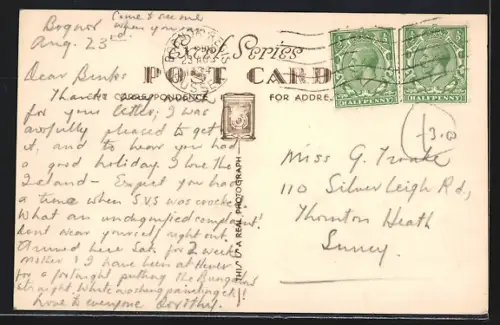 Bognor
Aug. 23
Come & see me
when you can
Dear Binks
Thanks
for your letter; I was
awfully pleased to get
it, and to hear you had
a good holiday. I love the
Island – Expect you had
a time when S.V.S was
What an undignified complaint!
Bent near yourself right out.
Arrived here Sat. for 2 weeks
Mother & I have been at Hever
for a fortnight putting the Bungalow
straight. White washing painting etc!
Love to everyone Dorothy.
Excel Series
POST CARD
CORRESPONDENCE
FOR ADDRE
THIS IS A REAL PHOTOGRAPH
HALFPENNY
HALFPENNY
SUSSEX
Miss G.
110 Silverleigh Rd,
Thornton Heath
Surrey.